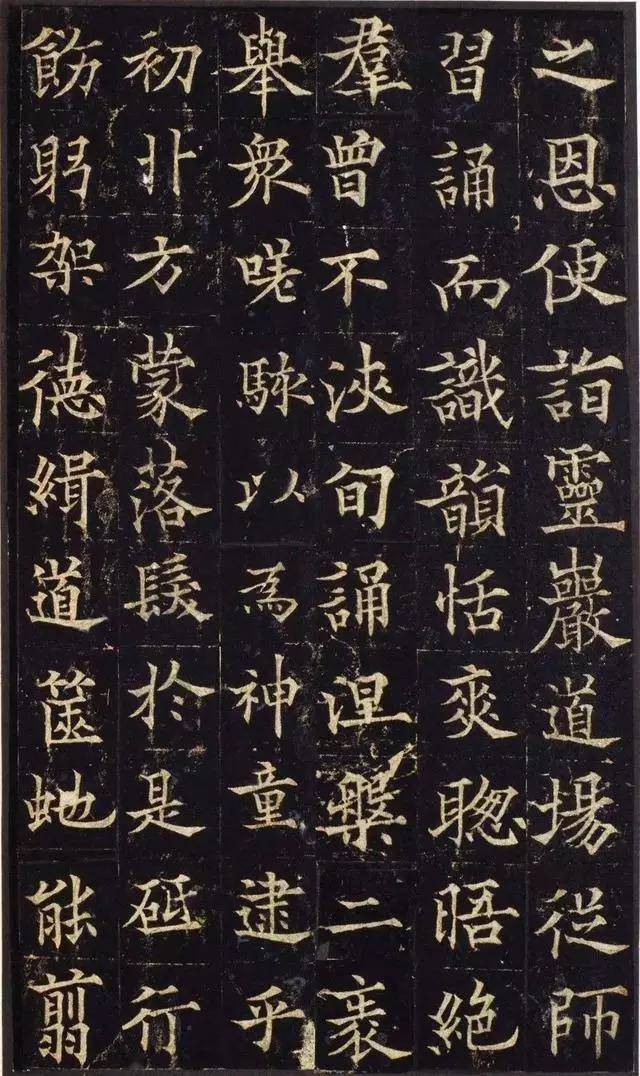 之恩便詣靈巖道場從師
習誦而識韻恬爽聦晤絶
羣曾不浹旬誦涅槃二袠
舉衆嗟駭以爲神童逮乎
初卝方蒙落髮於是砥行
飭躬架德緝道篋虵能翦